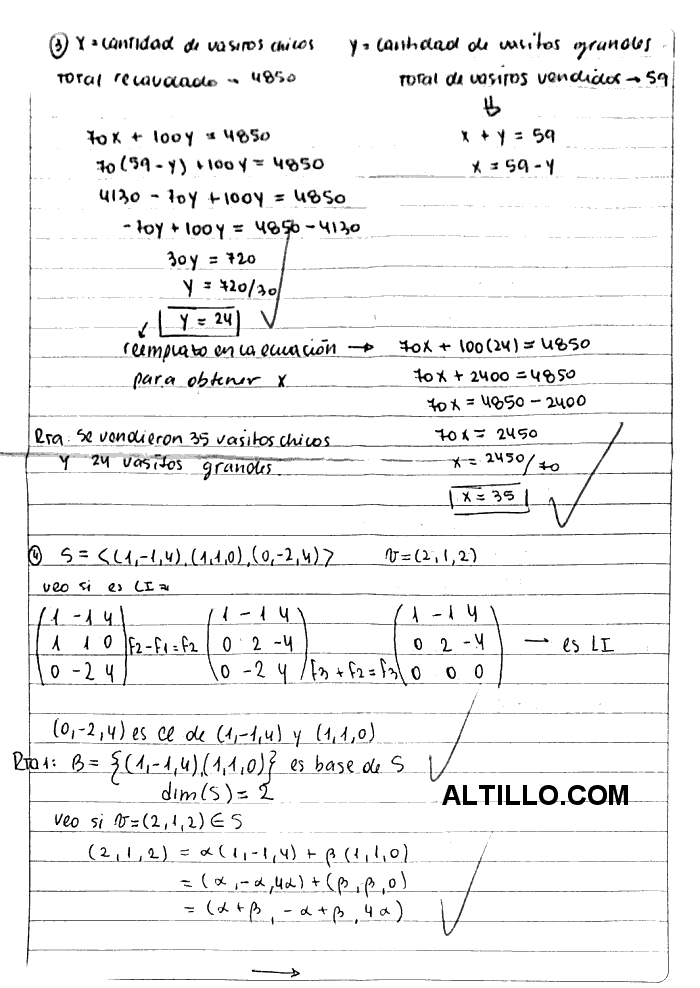 ③ X = cantidad de vasitos chicos   y = cantidad de vasitos grandes.
Total recaudado → 4850   Total de vasitos vendidos → 59
⇓
70x + 100y = 4850   x + y = 59
70(59-y) + 100y = 4850   x = 59-y
4130 - 70y + 100y = 4850
-70y + 100y = 4850 - 4130
30y = 720
y = 720/30
y = 24
reemplazo en la ecuación → 70x + 100(24) = 4850
para obtener x   70x + 2400 = 4850
70x = 4850 - 2400
Rta: Se vendieron 35 vasitos chicos   70x = 2450
y 24 vasitos grandes.   x = 2450/70
x = 35
④ S = <(1,-1,4),(1,1,0),(0,-2,4)>   v=(2,1,2)
veo si es LI =
(1 -1 4)   (1 -1 4)   (1 -1 4)
(1 1 0) f2-f1=f2 (0 2 -4)   (0 2 -4) → es LI
(0 -2 4)   (0 -2 4) f3+f2=f3 (0 0 0)
(0,-2,4) es CL de (1,-1,4) y (1,1,0)
Rta1: B = {(1,-1,4),(1,1,0)} es base de S
dim(S) = 2
ALTILLO.COM
veo si v=(2,1,2) ∈ S
(2,1,2) = α(1,-1,4) + β(1,1,0)
= (α,-α,4α) + (β,β,0)
= (α+β, -α+β, 4α)
→